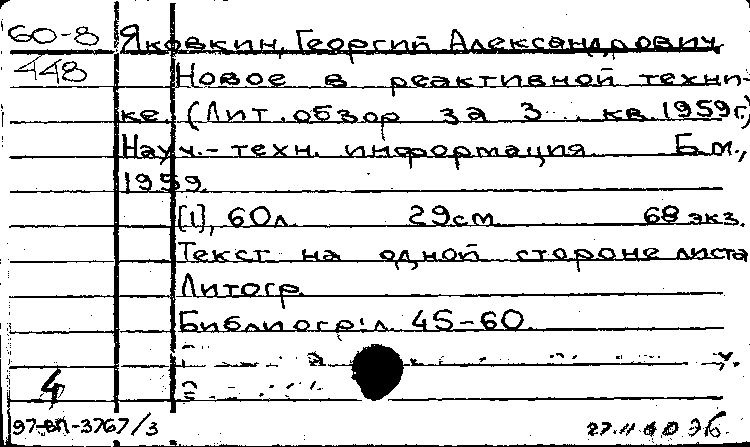 60-8 Яковкин, Георгий Александрович
448 Новое в реактивной техни-
ке. (Лит. обзор за 3 кв. 1959г.)
Науч.-техн. информация Б.м.,
1959.
[1], 60л. 29см 68 экз.
Текст на одной стороне листа
Литогр.
Библиогр: л. 45-60.
4
97-ВП-3767/3